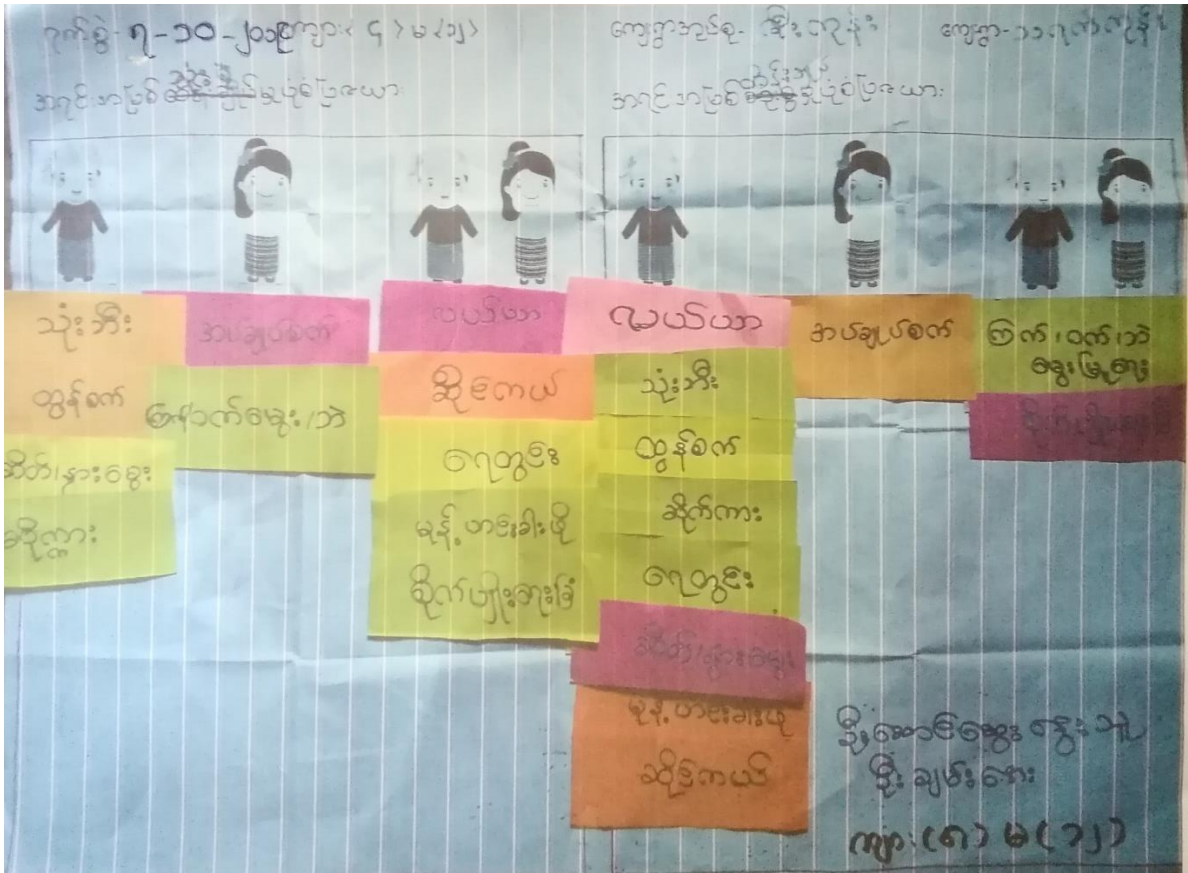 ရက်စွဲ- ၇-၁၀-၂၀၁၉ ကျား(၄) မ(၁၂) ကျေးရွာအုပ်စု- ကျေးရွာ-
အရင်းအမြစ် သုံးစွဲမှုပုံစံပြဇယား အရင်းအမြစ် ထိန်းချုပ်မှုပုံစံပြဇယား
သုံးဘီး
ထွန်စက်
ဆိတ်၊နွားမွေး
ဆိုက္ကား
အပ်ချုပ်စက်
ကြက်ဝက်မွေး၊ဘဲ
လယ်ယာ
ဆိုင်ကယ်
ရေတွင်း
မုန့်ဟင်းခါးဖို
စိုက်ပျိုးရေးခြံ
လယ်ယာ
သုံးဘီး
ထွန်စက်
ဆိုက်ကား
ရေတွင်း
ဆိတ်၊နွားမွေး
မုန့်ဟင်းခါးဖို
ဆိုင်ကယ်
အပ်ချုပ်စက်
ကြက်၊ဝက်၊ဘဲ
မွေးမြူရေး
ဦးဆောင်ဆွေးနွေးသူ
ဦးချမ်းအေး
ကျား(၈) မ(၁၂)